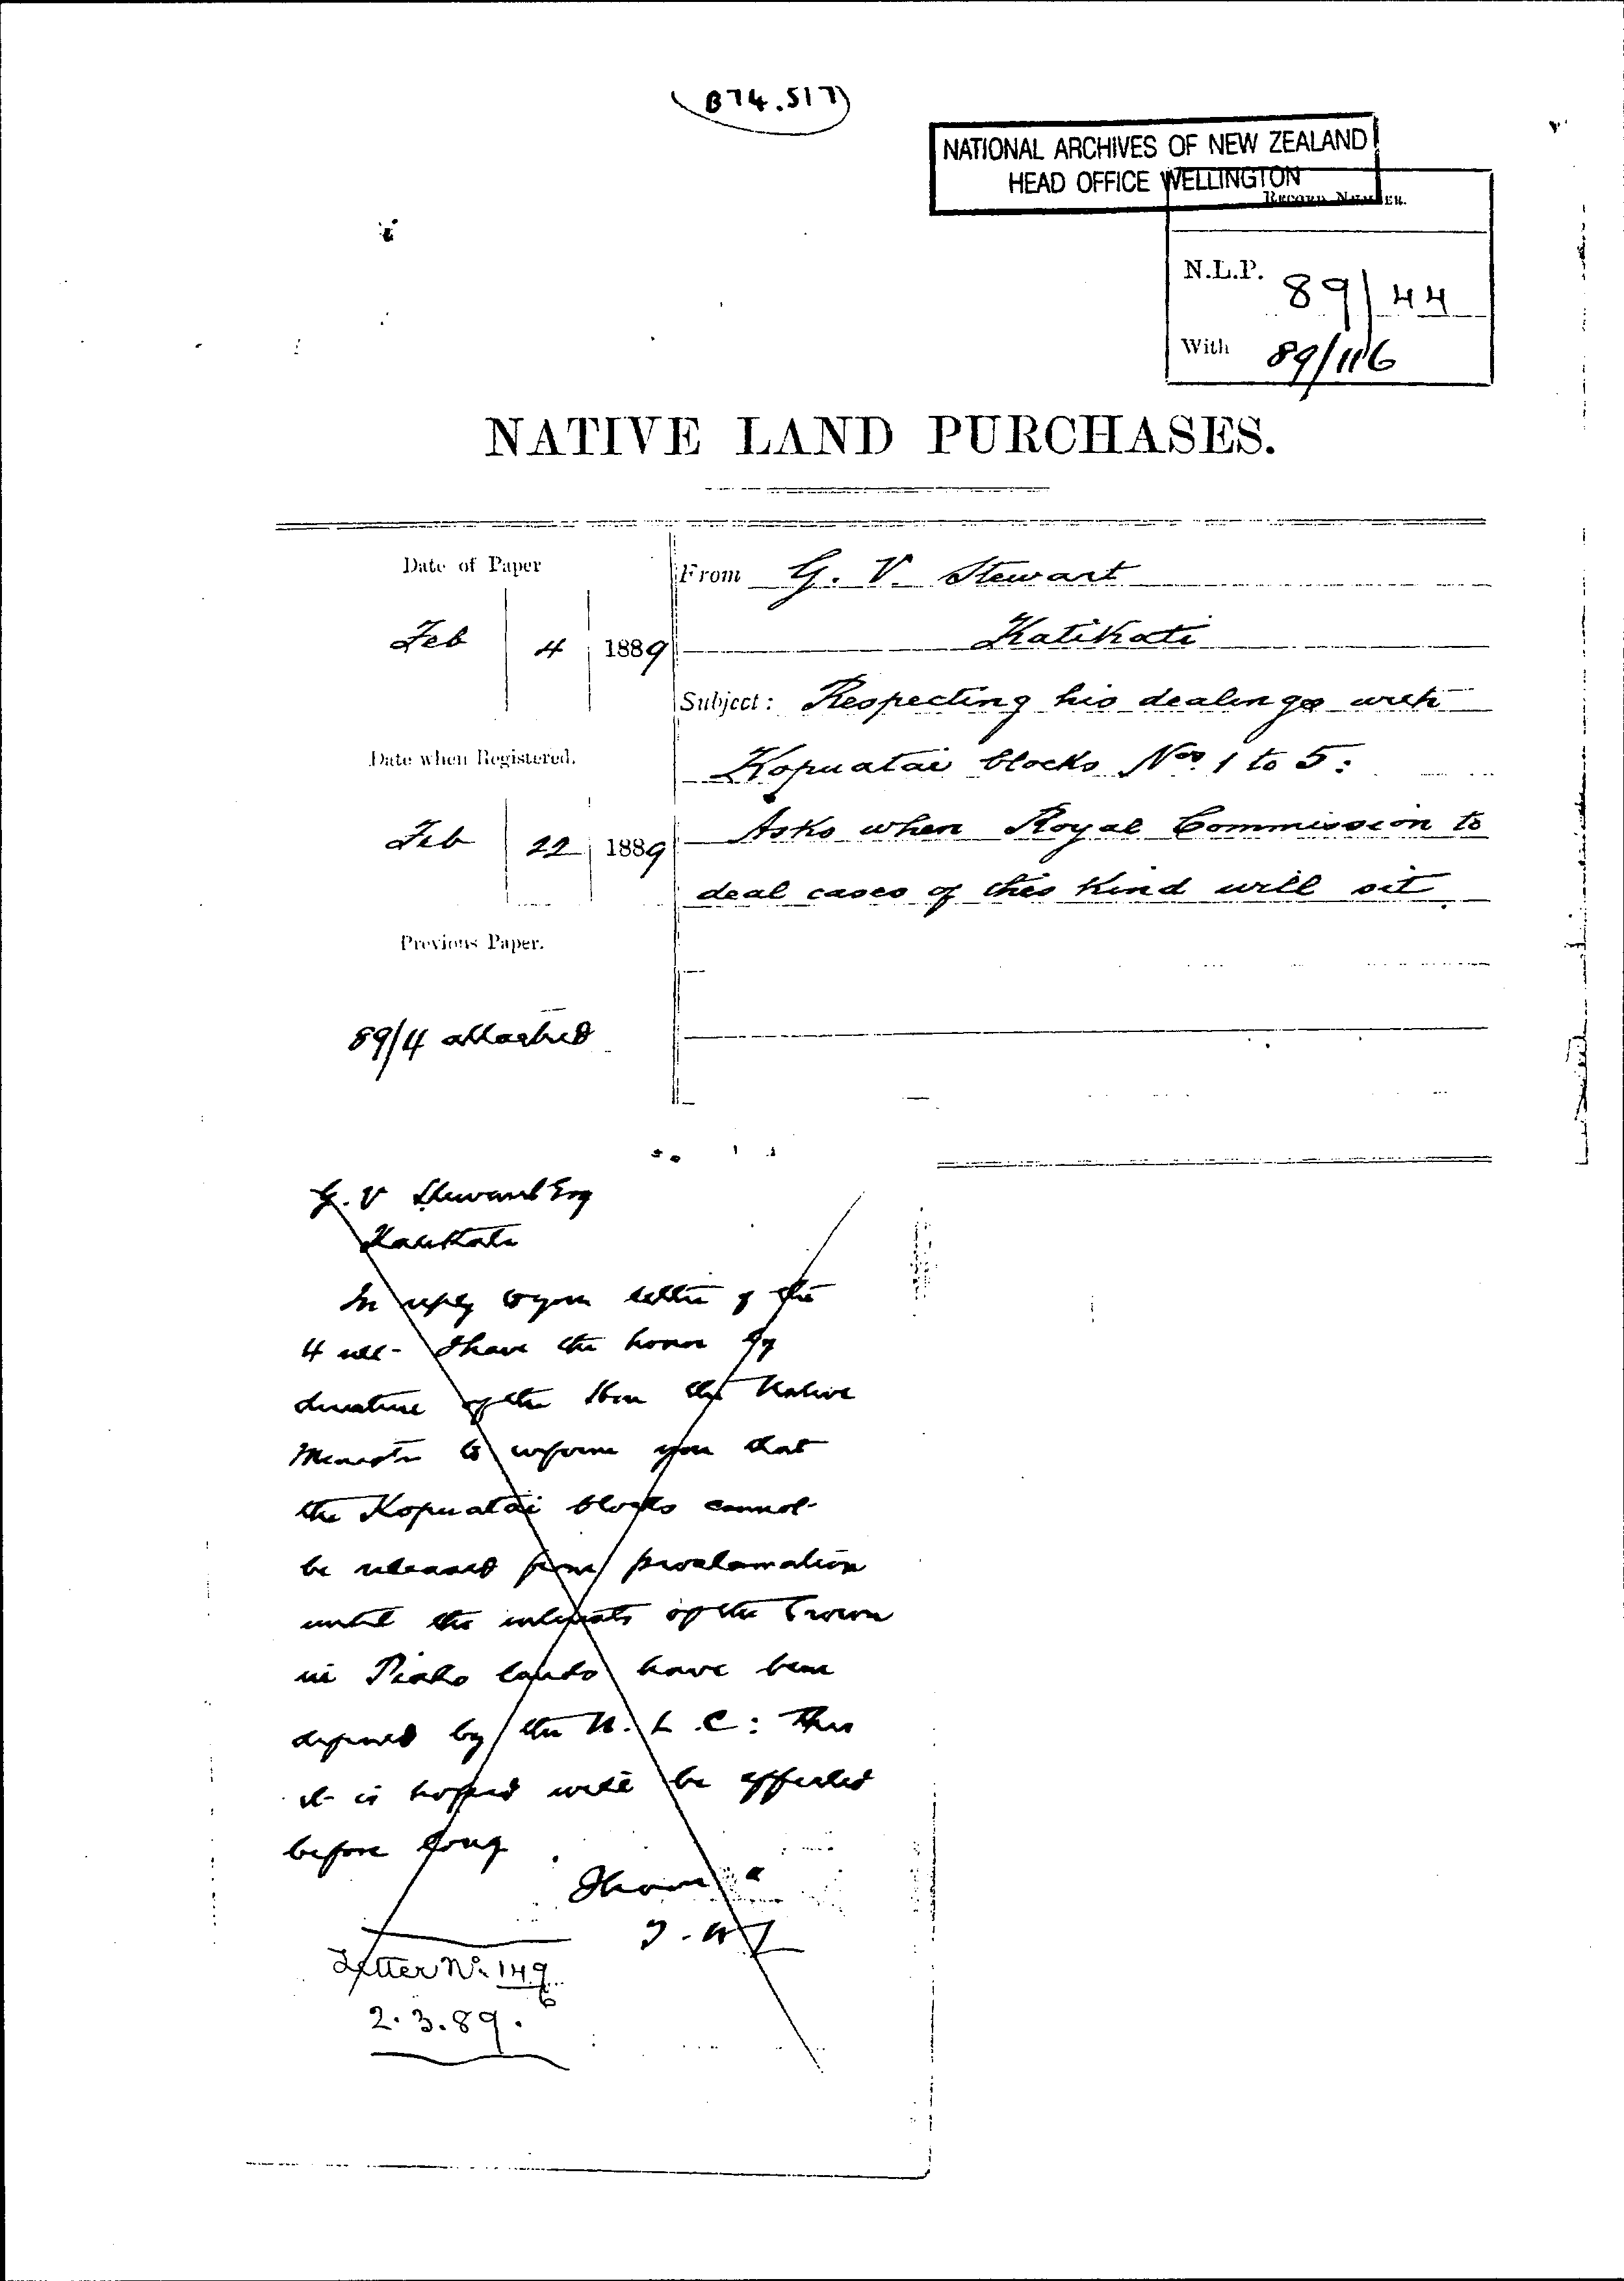 B74.517
NATIONAL ARCHIVES OF NEW ZEALAND
HEAD OFFICE WELLINGTON
RECORD NUMBER.
N.L.P. 89/44
With 89/116
NATIVE LAND PURCHASES.
Date of Paper
Feb 4 1889
From G. V. Stewart
Katikati
Subject: Respecting his dealings with
Kopuatai blocks Nos. 1 to 5:
Asks when Royal Commission to
deal cases of this kind will sit.
Date when Registered.
Feb 22 1889
Previous Paper.
89/4 attached
G. V Stewart Esq
Katikati
In reply to your letter of the
4 ult- I have the honor by
direction of the Hon the Native
Minister to inform you that
the Kopuatai blocks cannot
be released from proclamation
until the interests of the Crown
in Piako lands have been
defined by the N. L. C: This
it is hoped will be effected
before long.
I have
Letter No. 149
6
2.3.89.